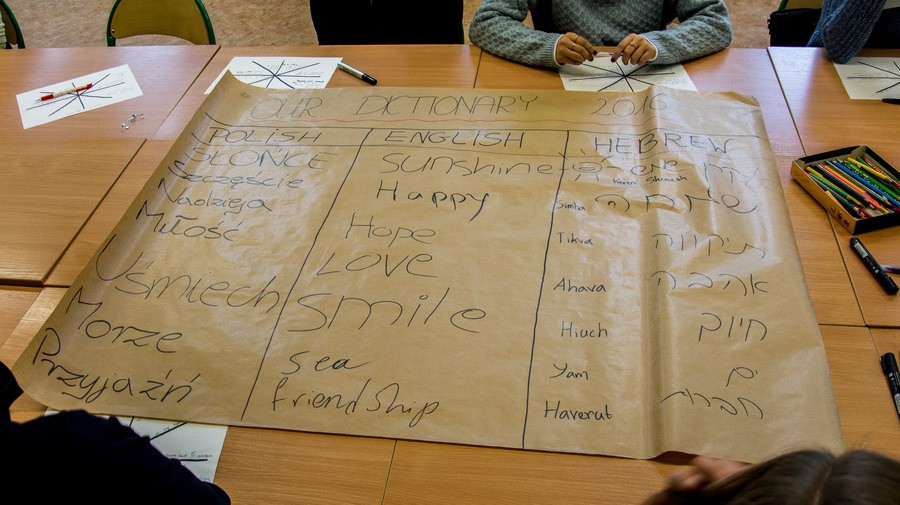 OUR DICTIONARY 2016
POLISH ENGLISH HEBREW
SŁOŃCE sunshine Keren Shemesh
Szczęście Happy Simha שמחה
Nadzieja Hope Tikva תיקווה
Miłość LOVE Ahava אהבה
Uśmiech Smile Hiuch חיוך
Morze sea Yam ים
Przyjaźń friendship Haverut חברות